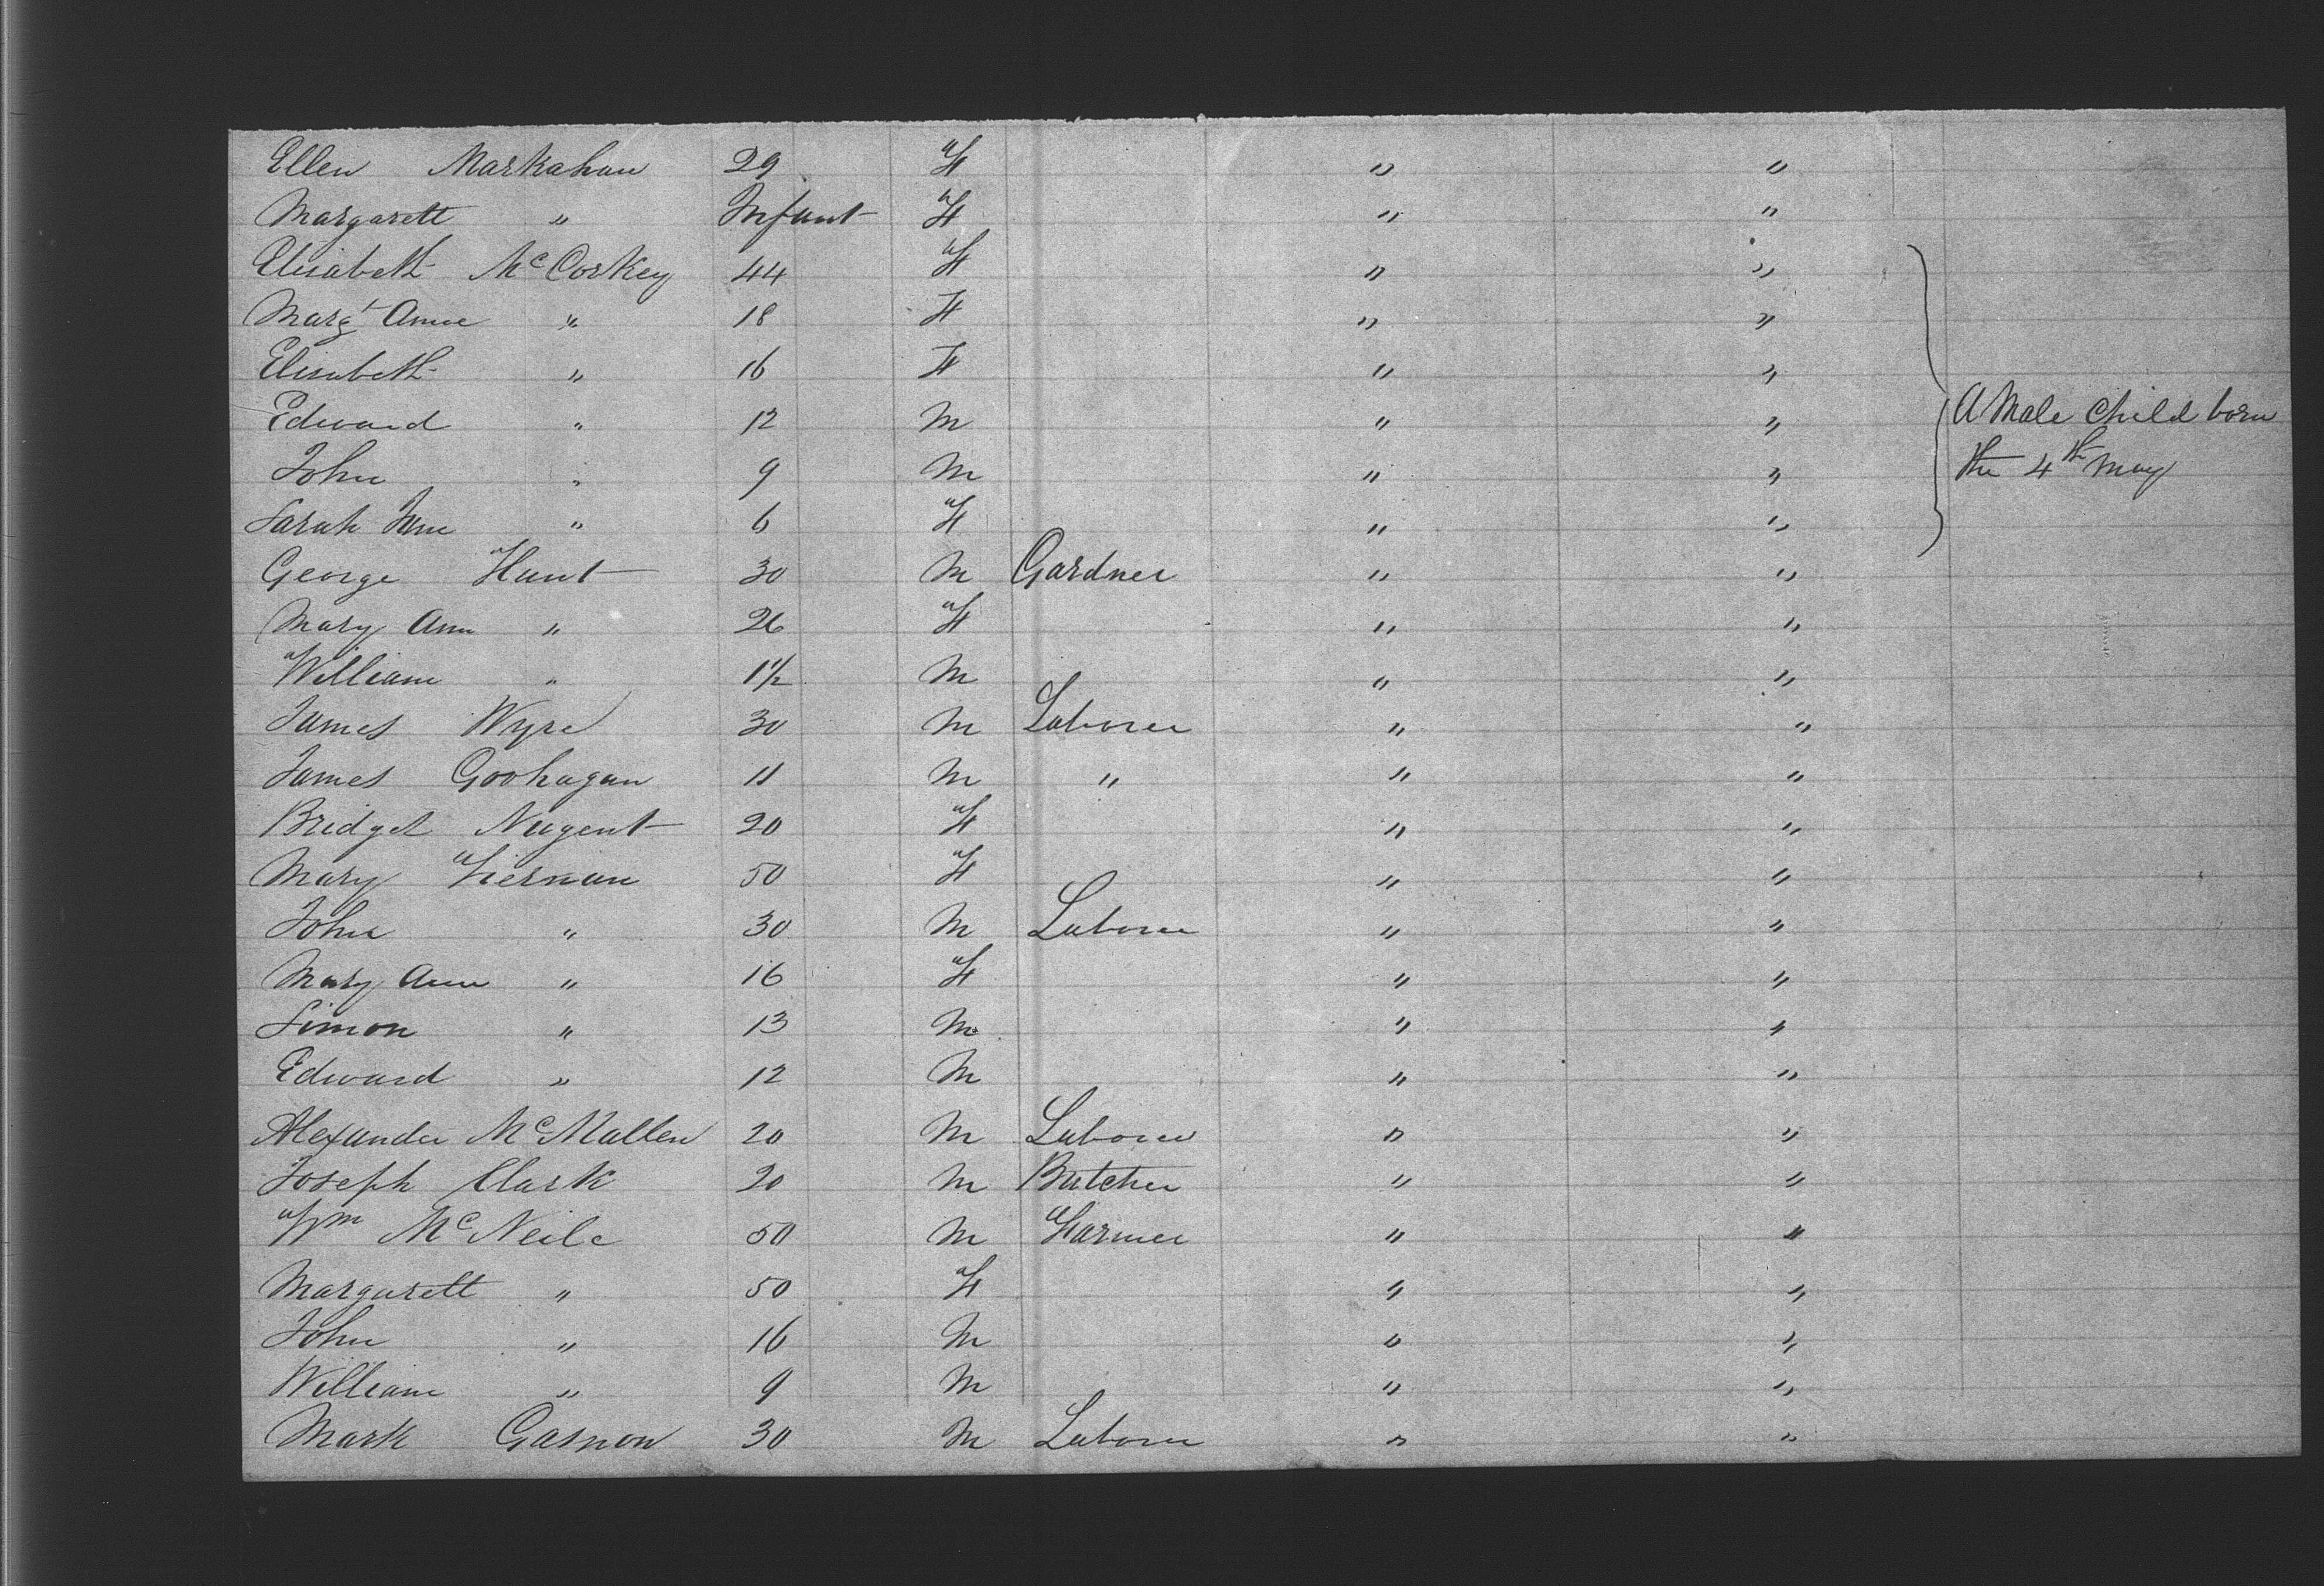 Ellen Markahan 29 F " "
Margarett " Infant F " "
Elisabeth McCorkey 44 F " "
Margt Anne " 18 F " "
Elisabeth " 16 F " "
Edward " 12 M " " A Male Child born
John " 9 M " " the 4th May
Sarah Jane " 6 F " "
George Hunt 30 M Gardner " "
Mary Ann " 26 F " "
William " 1½ M " "
James Wyre 30 M Laborer " "
James Goohagan 11 M " " "
Bridget Nugent 20 F " "
Mary Fiernan 50 F " "
John " 30 M Laborer " "
Mary Ann " 16 F " "
Simon " 13 M " "
Edward " 12 M " "
Alexander McMullen 20 M Laborer " "
Joseph Clark 20 M Butcher " "
Wm McNeile 50 M Farmer " "
Margarett " 50 F " "
John " 16 M " "
William " 9 M " "
Mark Gasnon 30 M Laborer " "